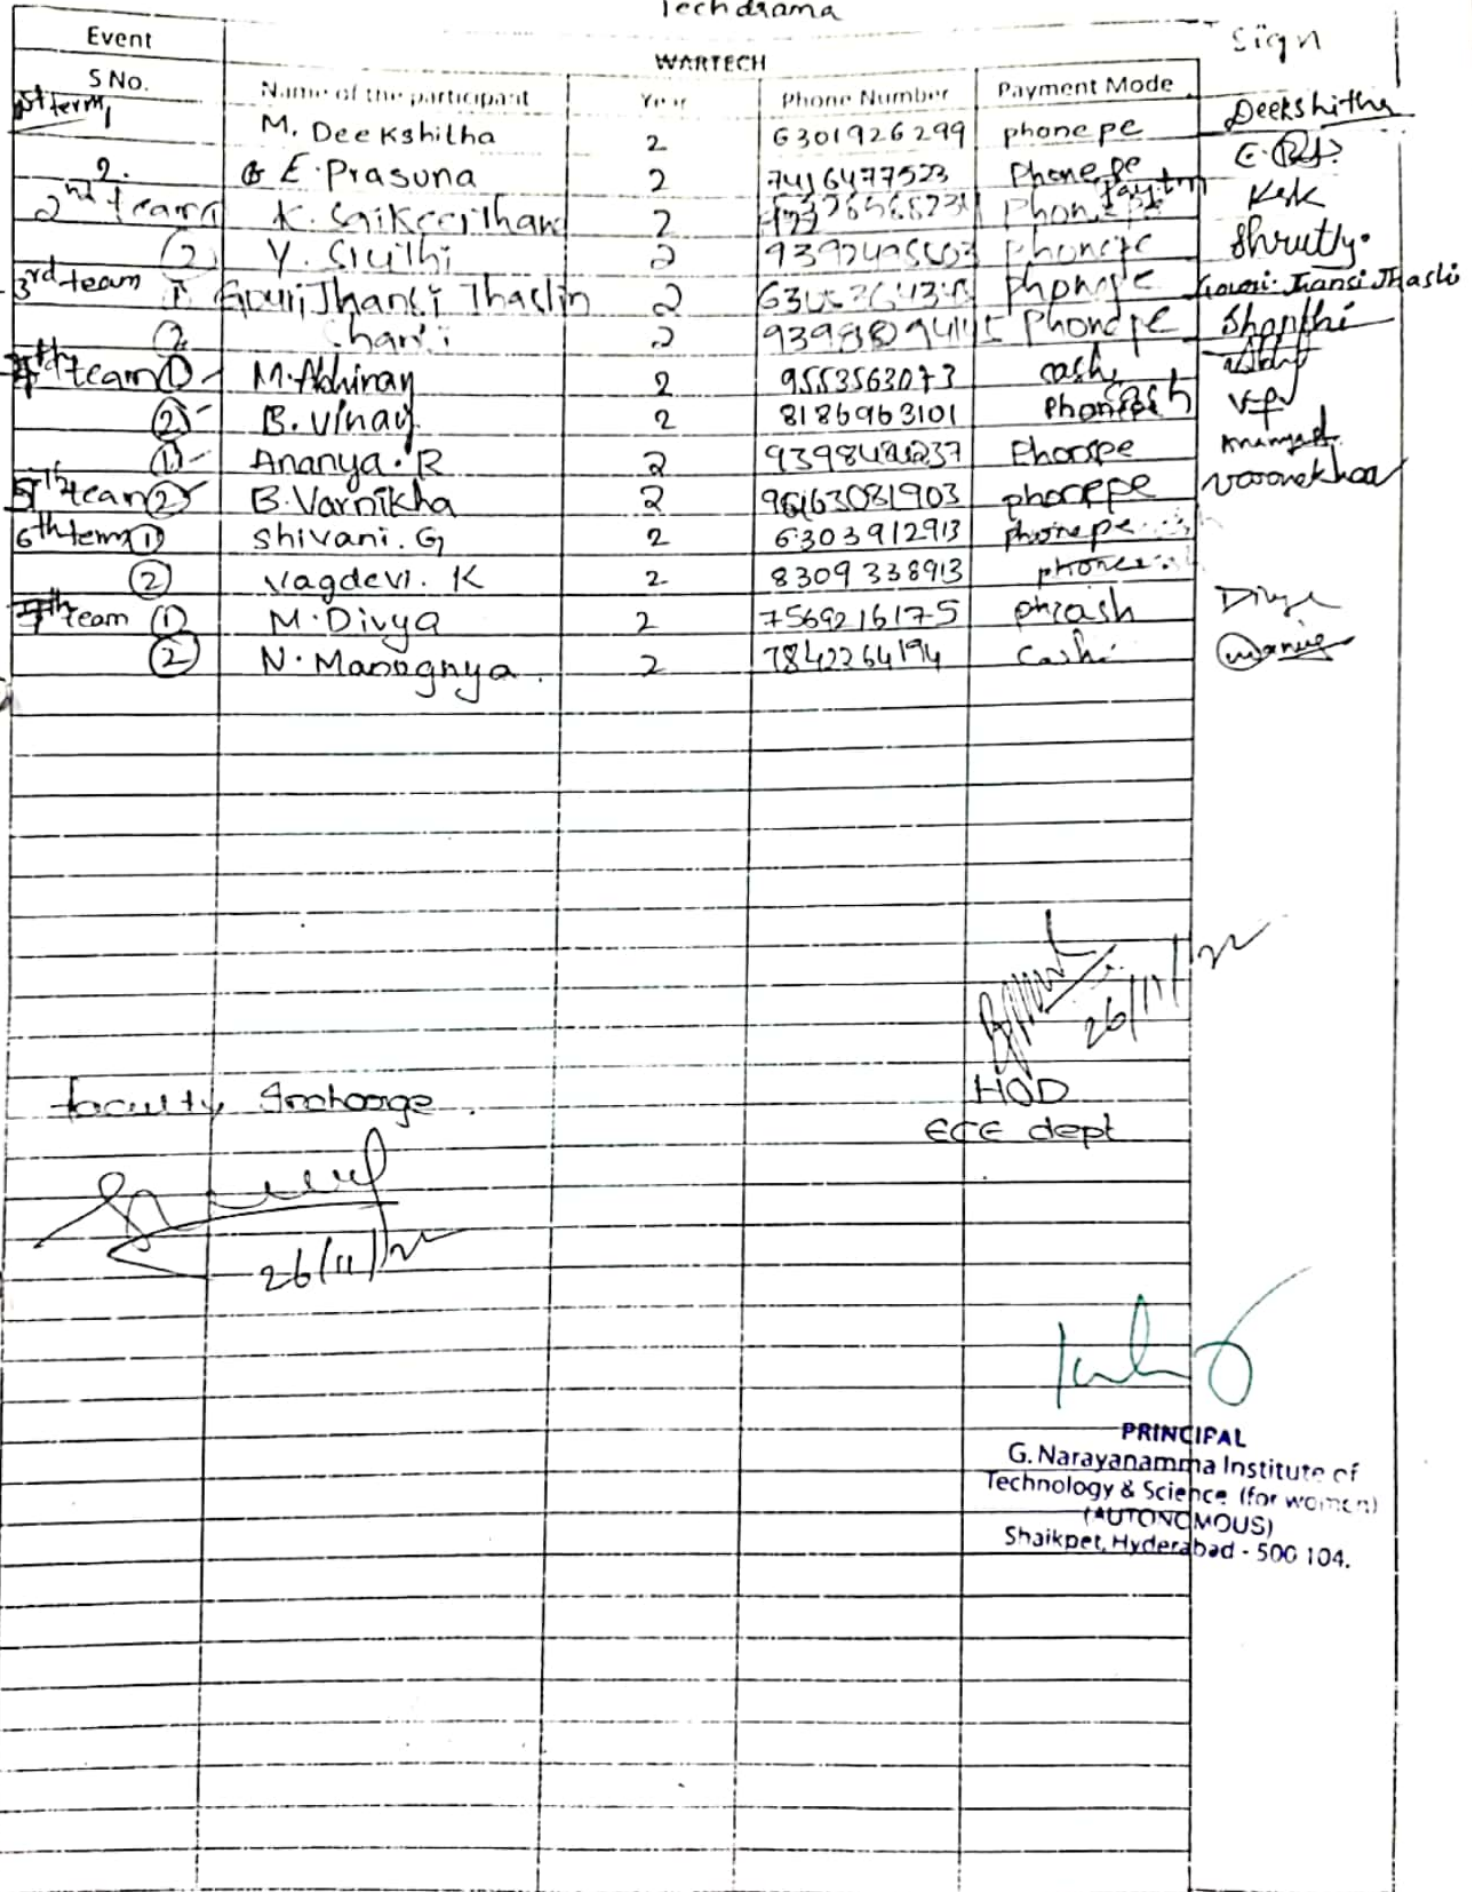 Techdrama
Event WARTECH Sign
S No. Name of the participant Year Phone Number Payment Mode
1st term, M. Deekshitha 2 6301926299 phonepe Deekshitha
2. E. Prasuna 2 7416477523 Phonepe
2nd team 1 K. Saikeerthana 2 Paytm Ksk
2 Y. Sruthi 2 phonepe Shrutly.
3rd team 1 Gouri Jhansi Thaslin 2 phonepe Gouri Jhansi Thasli
2 2 Phonepe Shanthi
4th team 1 M. Abhinay 2 9553563073 cash
2 B. Vinay 2 8186963101 cash
1 Ananya. R 2 Phonepe
5th team 2 B. Varnikha 2 phonepe
6th term 1 Shivani. G 2 6303912913 phonepe
2 Vagdevi. K 2 8309338913
7th team 1 M. Divya 2 7569216175 cash Divya
2 N. Manognya. 2 7842264194 Cash
26/11/22
faculty Incharge. HOD
ECE dept
26/11/22
PRINCIPAL
G. Narayanamma Institute of
Technology & Science (for women)
(AUTONOMOUS)
Shaikpet, Hyderabad - 500 104.